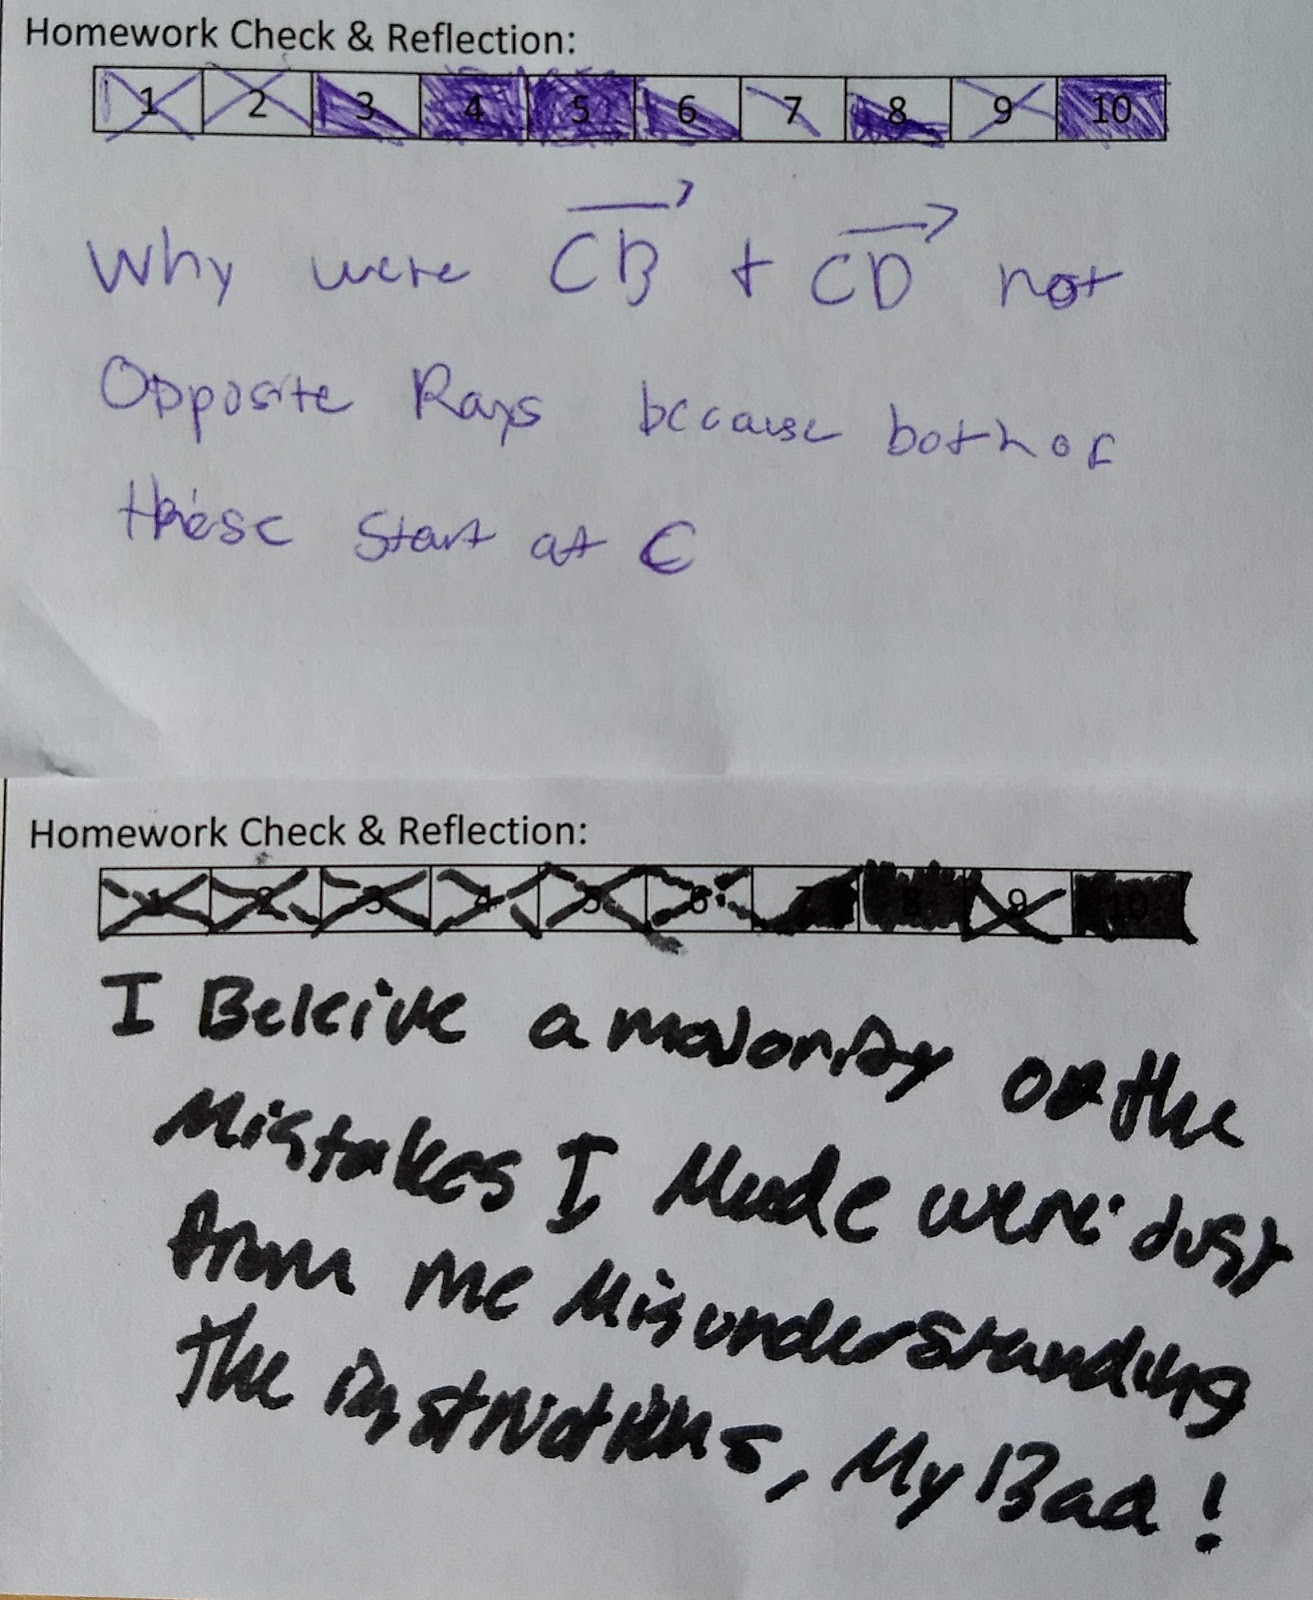 Homework Check & Reflection:
1 2 3 4 5 6 7 8 9 10
Why were CB + CD not
Opposite Rays because both of
these start at C
Homework Check & Reflection:
1 2 3 4 5 6 7 8 9 10
I Beleive a majority of the
Mistakes I Made were just
from me Misunderstanding
The instructions, My Bad!